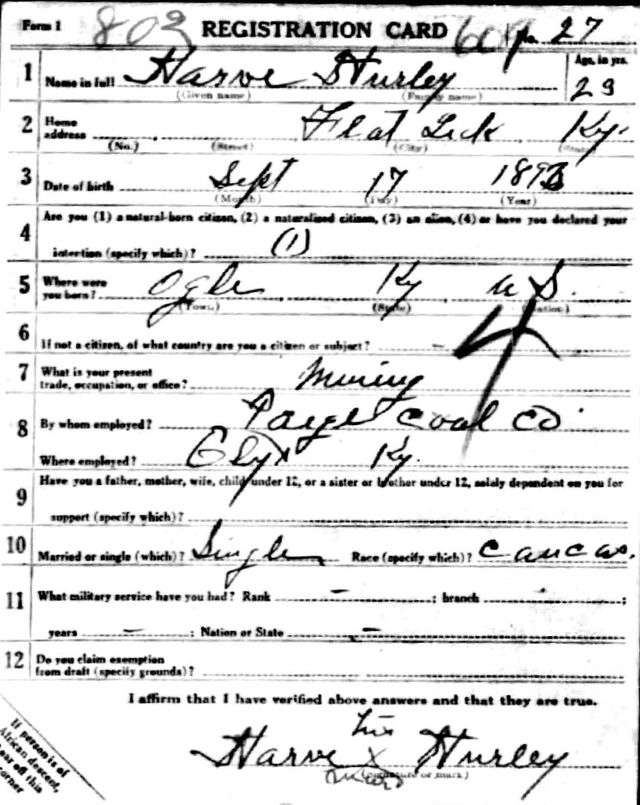 Form 1 803 REGISTRATION CARD 609 No. 27
1 Name in full Harve Hurley Age, in yrs.
(Given name) (Family name) 23
2 Home address Flat Lick Ky.
(No.) (Street) (City) (State)
3 Date of birth Sept 17 1893
(Month) (Day) (Year)
4 Are you (1) a natural-born citizen, (2) a naturalized citizen, (3) an alien, (4) or have you declared your
intention (specify which)? (1)
5 Where were you born? Ogle Ky U S.
(Town) (State) (Nation)
4
6 If not a citizen, of what country are you a citizen or subject? -
7 What is your present trade, occupation, or office? Mining
8 By whom employed? Paige Coal Co.
Where employed? Ky.
9 Have you a father, mother, wife, child under 12, or a sister or brother under 12, solely dependent on you for
support (specify which)?
10 Married or single (which)? Single Race (specify which)? Caucas.
11 What military service have you had? Rank - ; branch - ;
years - ; Nation or State -
12 Do you claim exemption from draft (specify grounds)?
I affirm that I have verified above answers and that they are true.
his
Harve x Hurley
mark (Signature or mark)
If person is of
African descent,
tear off this
corner